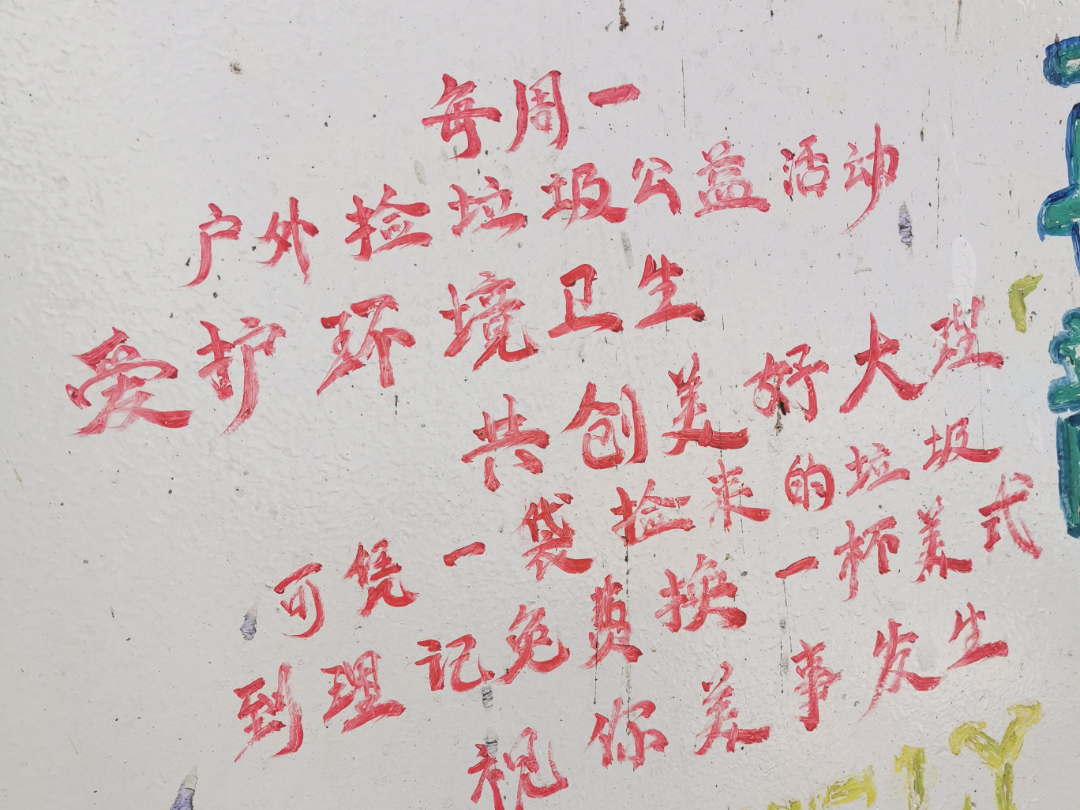 每周一
户外捡垃圾公益活动
爱护环境卫生
共创美好大理
可凭一袋捡来的垃圾
到理记免费换一杯美式
祝你美事发生